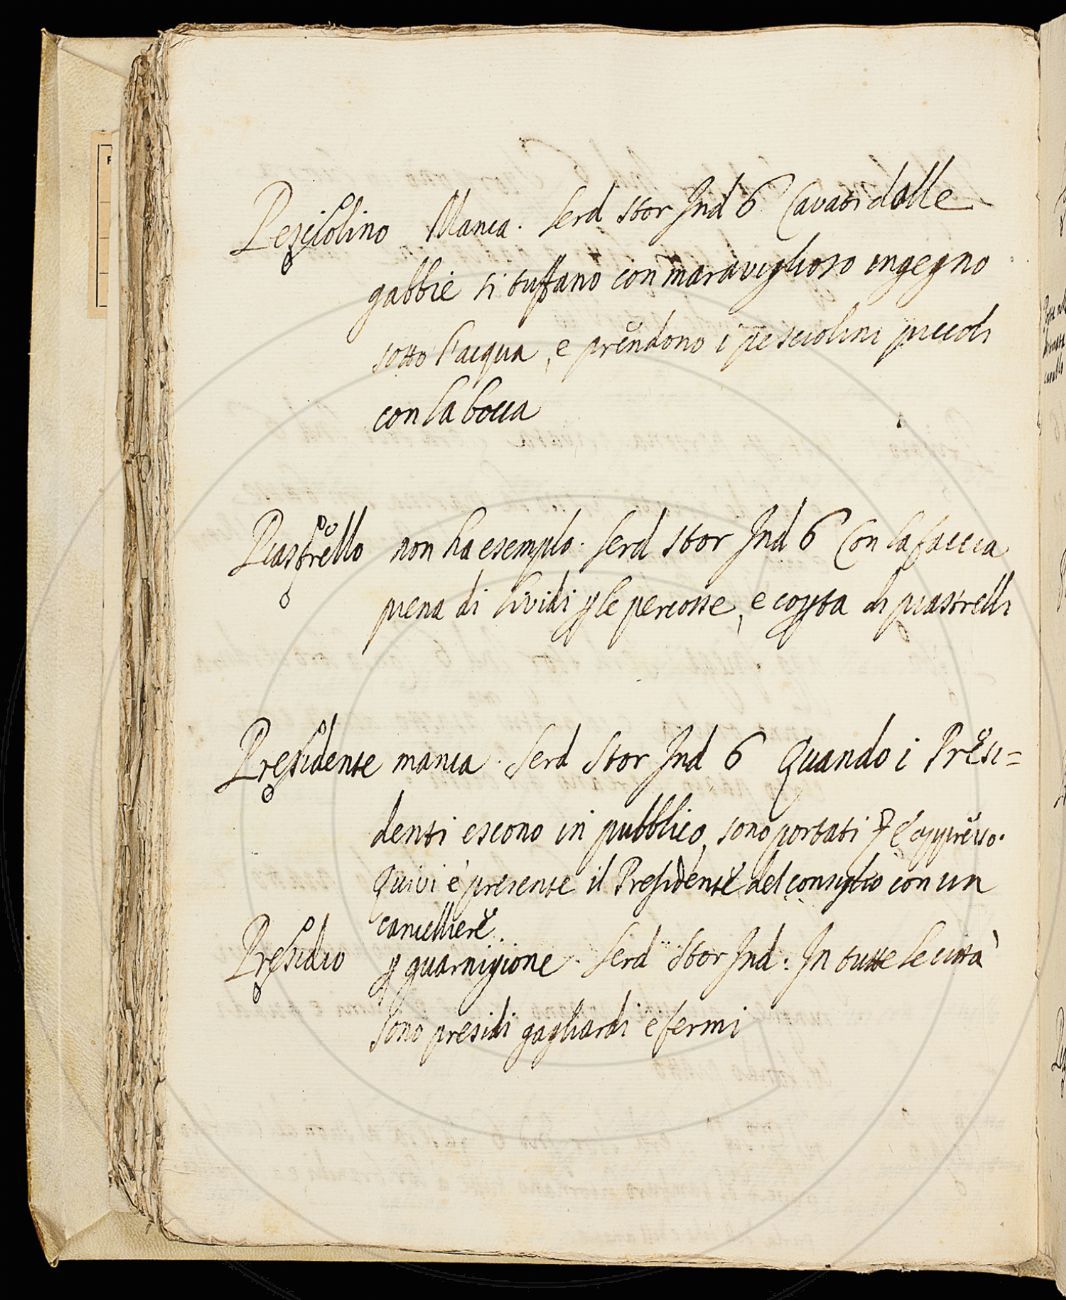 Pesciolino Manca. Serd Stor Ind 6 Cavati dalle
gabbie si tuffano con maraviglioso ingegno
sotto l'acqua, e prendono i pesciolini piccoli
con la bocca
Piastrello non ha esemplo. Serd Stor Ind 6 Con la faccia
piena di lividi p le percosse, e copta di piastrelli
Presidente manca. Serd Stor Ind 6 Quando i Presi=
denti escono in pubblico, sono portati e appresso.
Quivi è presente il Presidente del consiglio con un
cancelliere
Presidio p guarnigione. Serd Stor Ind: In tutte le città
sono presidi gagliardi e fermi